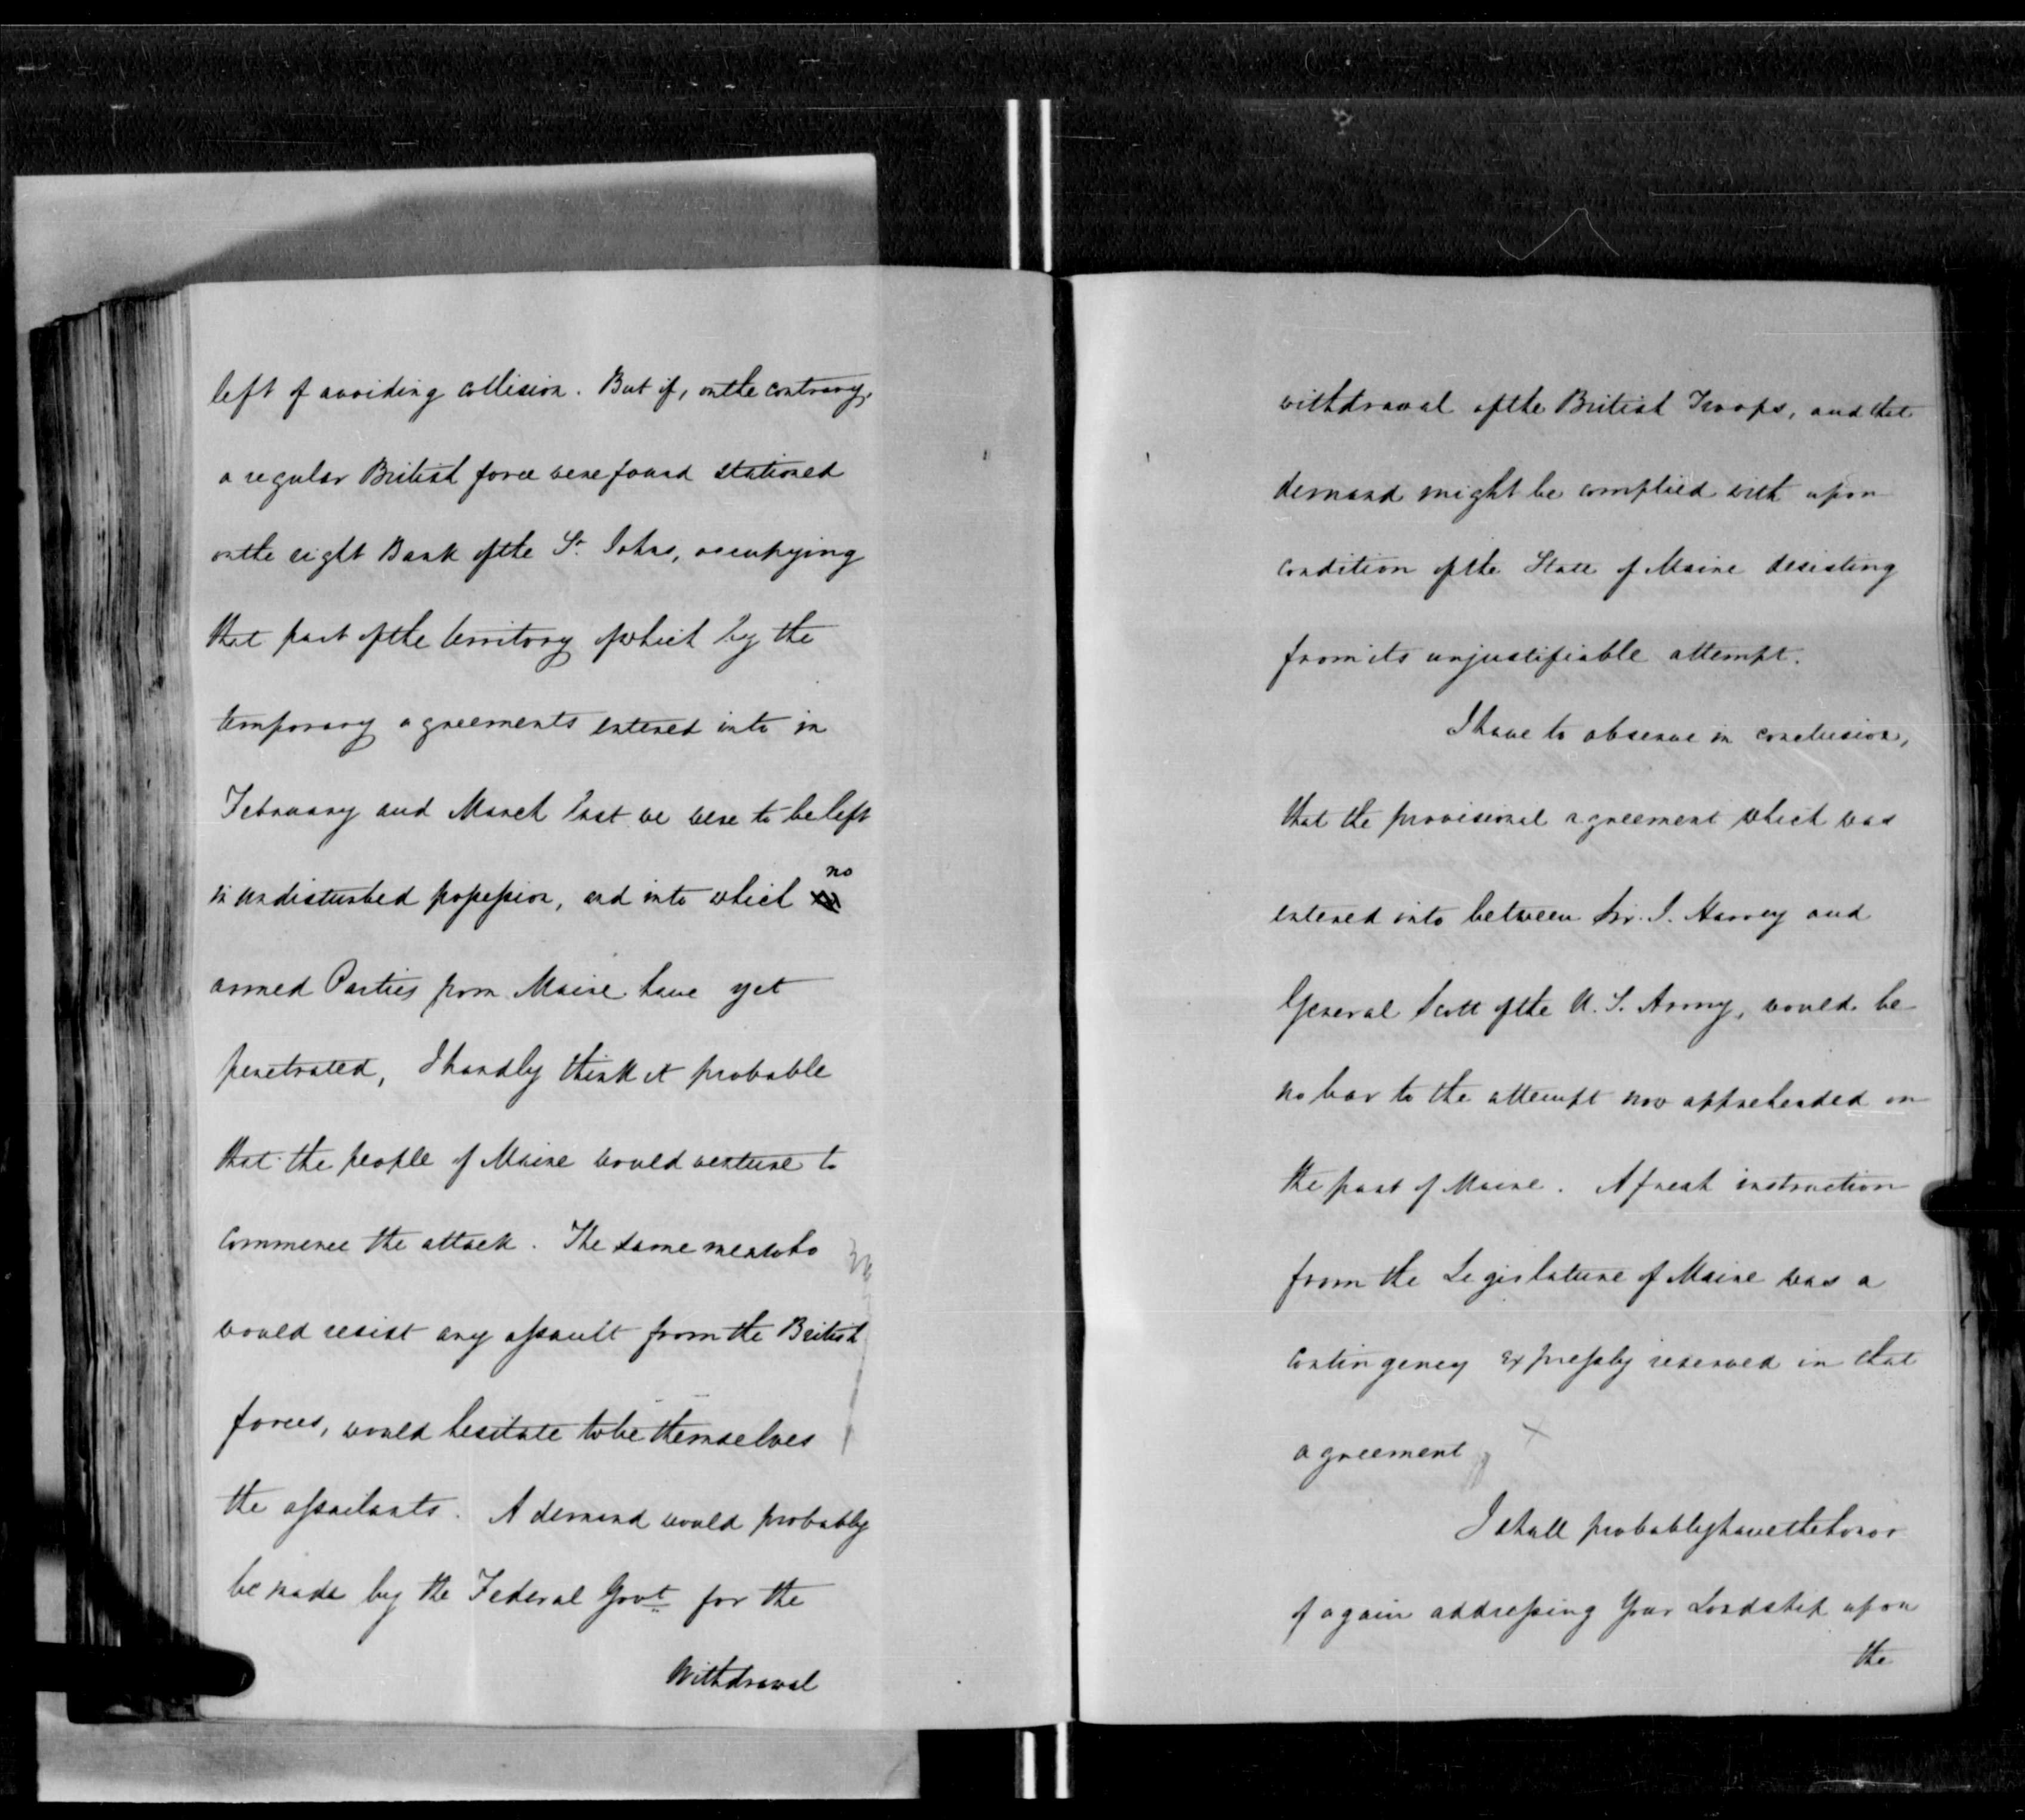 left of avoiding collision. But if, on the contrary,
a regular British force were found stationed
on the right Bank of the St. Johns, occupying
that part of the territory of which by the
temporary agreements entered into in
February and March last we were to be left
in undisturbed possession, and into which no
armed Parties from Maine have yet
penetrated, I hardly think it probable
that the people of Maine would venture to
commence the attack. The same men who
would resist any assault from the British
forces, would hesitate to be themselves
the assailants. A demand would probably
be made by the Federal Govt for the
Withdrawal
withdrawal of the British Troops, and that
demand might be complied with upon
condition of the State of Maine desisting
from its unjustifiable attempt.
I have to observe in conclusion,
that the provisional agreement which was
entered into between Sir. J. Harvey and
General Scott of the U. S. Army, would be
no bar to the attempt now apprehended on
the part of Maine. A fresh instruction
from the Legislature of Maine was a
contingency expressly reserved in that
agreement
I shall probably have the honor
of again addressing Your Lordship upon
the